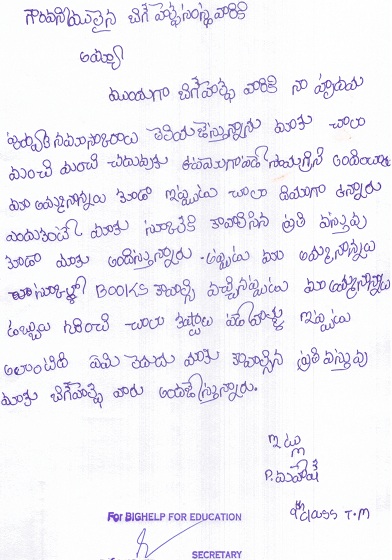 గౌరవనీయులైన బిగ్ హెల్ప్ సంస్థ వారికి
అయ్యా
ముందుగా బిగ్ హెల్ప్ వారికి నా హృదయ
పూర్వక నమస్కారాలు తెలియజేస్తున్నాను మాకు చాలా
మంచి మంచి చదువుకు ఉపయోగపడే సామగ్రిని అందించారు
మా అమ్మనాన్నలు కూడా ఇప్పుడు చాలా దిమగా ఉన్నారు
ఎందుకంటే మాకు స్కూల్‌కి కావలసిన ప్రతి వస్తువు
కూడా మాకు అందిస్తున్నారు. అప్పుడు మా అమ్మనాన్నలు
స్కూల్లో BOOKS కావాల్సి వచ్చినప్పుడు మా అమ్మనాన్నలు
డబ్బులు గురించి చాలా కష్టాలు పడేవాళ్ళు ఇప్పుడు
అలాంటిది ఏమి లేదు మాకు కావాల్సిన ప్రతి వస్తువు
మాకు బిగ్ హెల్ప్ వారు అందజేస్తున్నారు.
ఇట్లు
P. మహేష్
9th class T.M
For BIGHELP FOR EDUCATION
SECRETARY